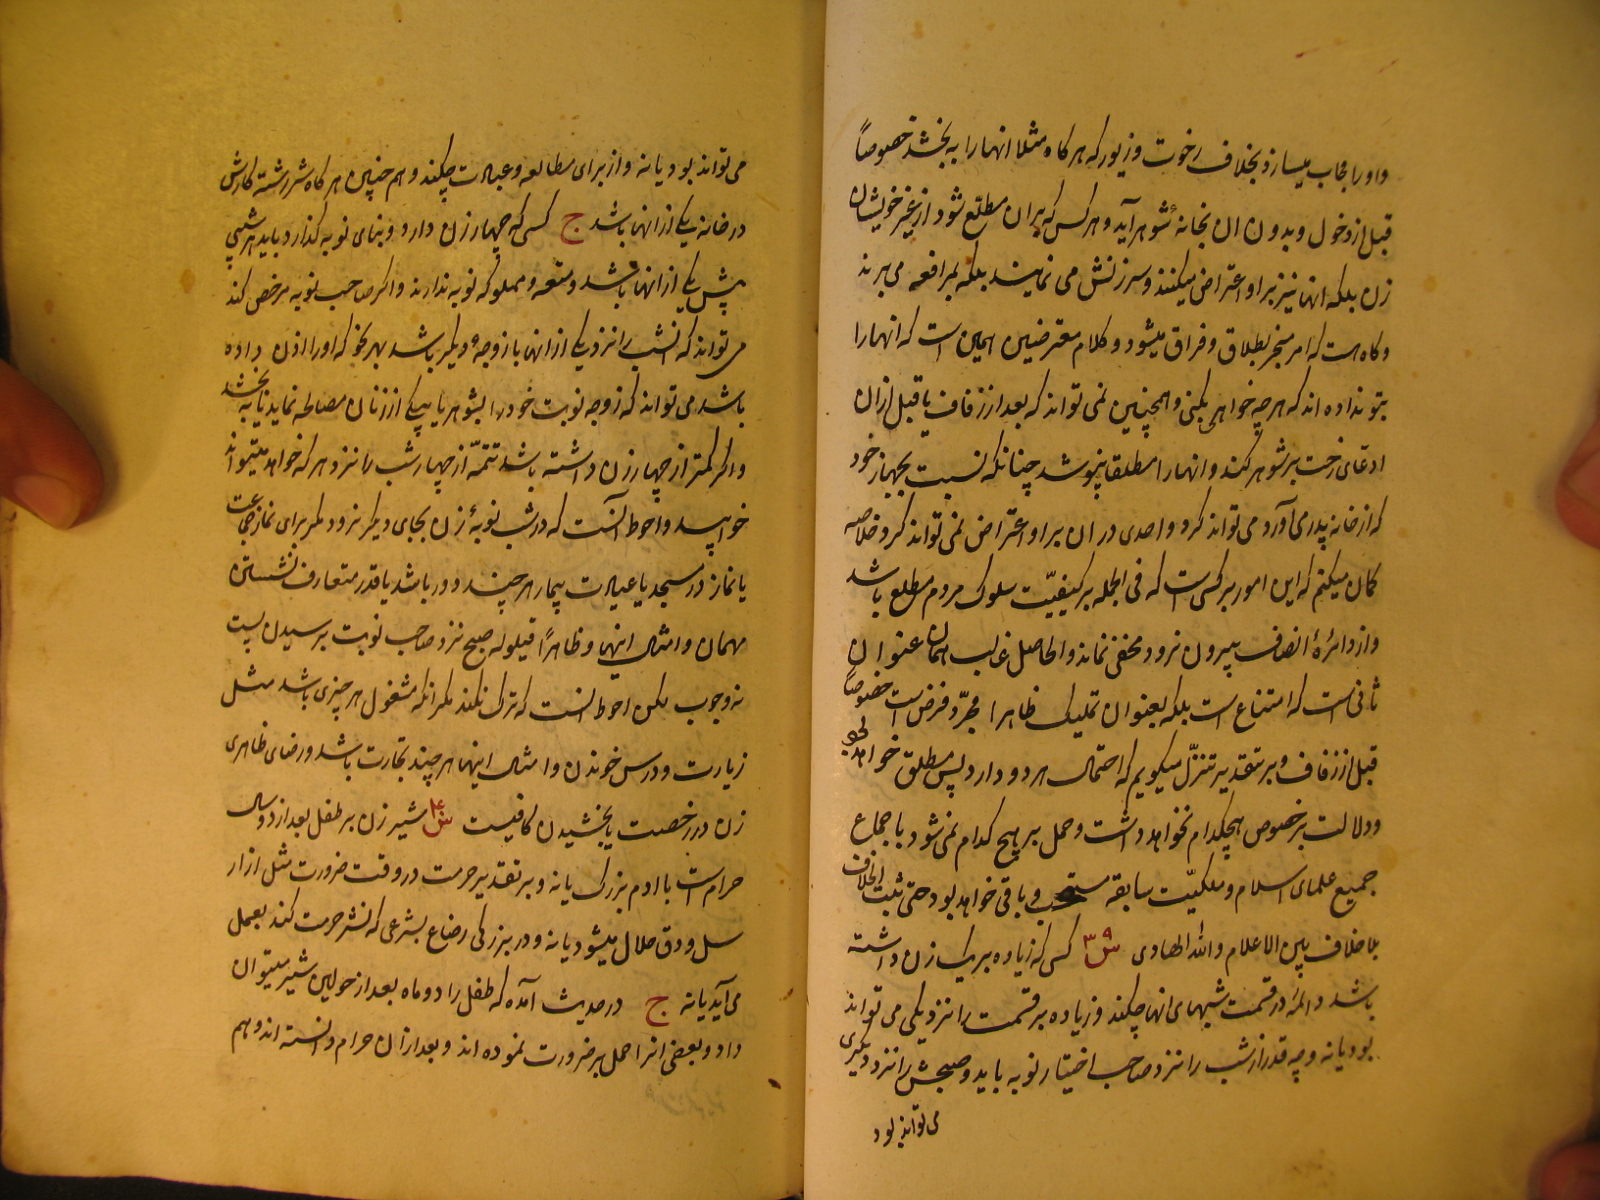 و او را مجاب میسازد بخلاف رخوت و زیور که هر کاه مثلا انها را به بخشد خصوصاً
قبل از دخول و بدون ان بخانهٔ شوهر آید و هر کس که بران مطلع شود از غیر خویشان
زن بلکه انها نیز بر او اعتراض میکنند و سرزنش می نمایند بلکه بمرافعه می برند
و کاه هست که امر منجر بطلاق و فراق میشود و کلام معترضین همین است که انها را
بتو نداده اند که هر چه خواهی بکنی و همچنین نمی تواند که بعد از زفاف یا قبل از ان
ادعای رخت بر شوهر کند و انها را مطلقا نپوشد چنانکه نسبت بجهیاز خود
که از خانه پدر می آورد می تواند کرد و احدی در ان بر او اعتراض نمی تواند کرد خلاصه
کمان میکنم که این امور بر کسی است که فی الجمله بر کیفیّت سلوک مردم مطلع باشد
و از دائرهٔ انصاف بیرون نرود مخفی نماند و الحاصل غالب همان عنوان
ثانی است که امتناع است بلکه بعنوان تملیک ظاهرا مجرّد فرض است خصوصاً
قبل از زفاف و بر تقدیر تنزّل میکویم که احتمال هر دو دارد پس مطلق خواهد بود
و دلالت بر خصوص هیچکدام نخواهد داشت و حمل بر هیچ کدام نمی شود باجماع
جمیع علمای اسلام و ملکیّت سابقه مستصحب و باقی خواهد بود حتی یثبت الخلاف
بلا خلاف بین الاعلام والله الهادی س۳۹ کسی که زیاده بر یک زن داشته
باشد دائمه در قسمت شبهای انها چکند و زیاده بر قسمت را نزد یکی می تواند
بود یا نه و چه قدر از شب را نزد صاحب اختیار نوبه باید و صبحش را نزد دیکری
می تواند بود
می تواند بود یا نه و از برای مطالعه و عبادت چکند و هم چنین هر کاه سررشته کارش
در خانه یکی از انها باشد ج کسی که چهار زن دارد و بنای نوبه کذارد باید هر شبی
پیش یکی از انها باشد و متعه و مملوکه نوبه ندارند و اکر صاحب نوبه مرخص کند
می تواند که انشب را نزد یکی از انها یا زوجهٔ دیکر باشد بهر نحو که او را اذن داده
باشد می تواند که زوجه نوبت خود را بشوهر یا بیکی از زنان مصالحه نماید یا به بخشد
و اکر کمتر از چهار زن داشته باشد تتمّه از چهار شب را نزد هر که خواهد میتواند
خوابید و احوط آنست که در شب نوبهٔ زن بجای دیکر نرود مکر برای نماز جماعت
یا نماز در مسجد یا عیادت بیمار هر چند دور باشد یا قدر متعارف نشستن
مهمان و امثال اینها و ظاهراً قیلوله صبح نزد صاحب نوبت بر سبیل استحباب است
نه وجوب لکن احوط انست که ترک نکند مکر انکه مشغول هر چیزی باشد مثل
زیارت و درس خوندن و امثال اینها هر چند تجارت باشد و رضای ظاهری
زن در رخصت یا بخشیدن کافیست س۴۰ شیر زن بر طفل بعد از دو سال
حرام است یا ادم بزرک یا نه و بر تقدیر حرمت در وقت ضرورت مثل ازار
سل و دق حلال میشود یا نه و در بزرکی رضاع بشرعی که نشر حرمت کند بعمل
می آید یا نه ج در حدیث آمده که طفل را دو ماه بعد از حولین شیر میتوان
داد و بعضی انرا حمل بر ضرورت نموده اند و بعد از ان حرام دانسته اند و هم